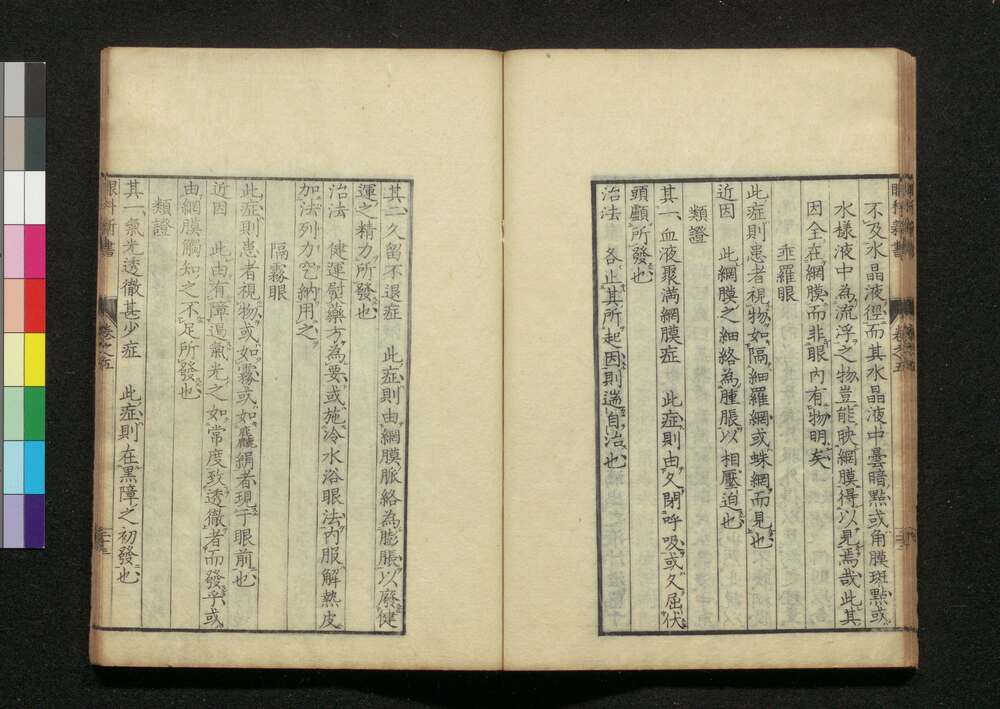 不及水晶液徑而其水晶液中曇暗點或角膜斑點或
水樣液中為流浮之物豈能映網膜得以見焉哉此其
因全在網膜而非眼內有物明矣
垂羅眼
此症則患者視物如隔細羅網或蛛網而見也
近因　此網膜之細絡為腫脹以相壓迫也
類證
其一血液聚滿網膜症　此症則由久閉呼吸或久屈伏
頭顱所發也
治法　各止其所起因則遄自治也
其二久留不退症　此症則由網膜脈絡為膨脹以廢健
運之精力所發也
治法　健運慰藥方為要或施冷水浴眼法內服解熱皮
加法列力究納用之
隔霧眼
此症則患者視物或如霧或如麤絹者現于眼前也
近因　此由有障遏氣光之如常度致透徹者而發乎或
由網膜觸知之不足所發也
類證
其一氣光透徹甚少症　此症則在黑障之初發也
眼科新書
卷之五